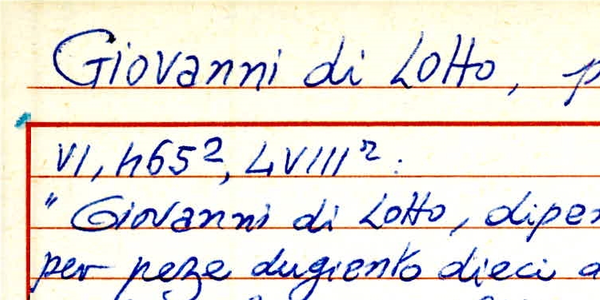 Giovanni di Lotto, p
VI, 465², LVIIIʳ:
"Giovanni di Lotto, diper
per peze dugiento dieci d